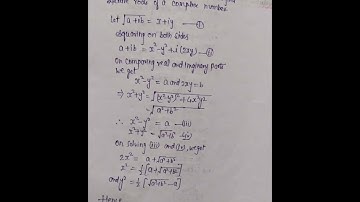 square root of a complex number
Let √a+ib = x+iy —(i)
squaring on both sides
a+ib = x²-y²+i(2xy) —(ii)
on comparing real and imaginary parts
we get
x²-y² = a and 2xy=b
⇒ x²+y² = √(x²-y²)²+4x²y²
= √a²+b²
∴ x²-y² = a —(iii)
x²+y² = √a²+b² —(iv)
on solving (iii) and (iv), we get
2x² = a+√a²+b²
x² = ½[a+√a²+b²]
and y² = ½[√a²+b²-a]
Hence